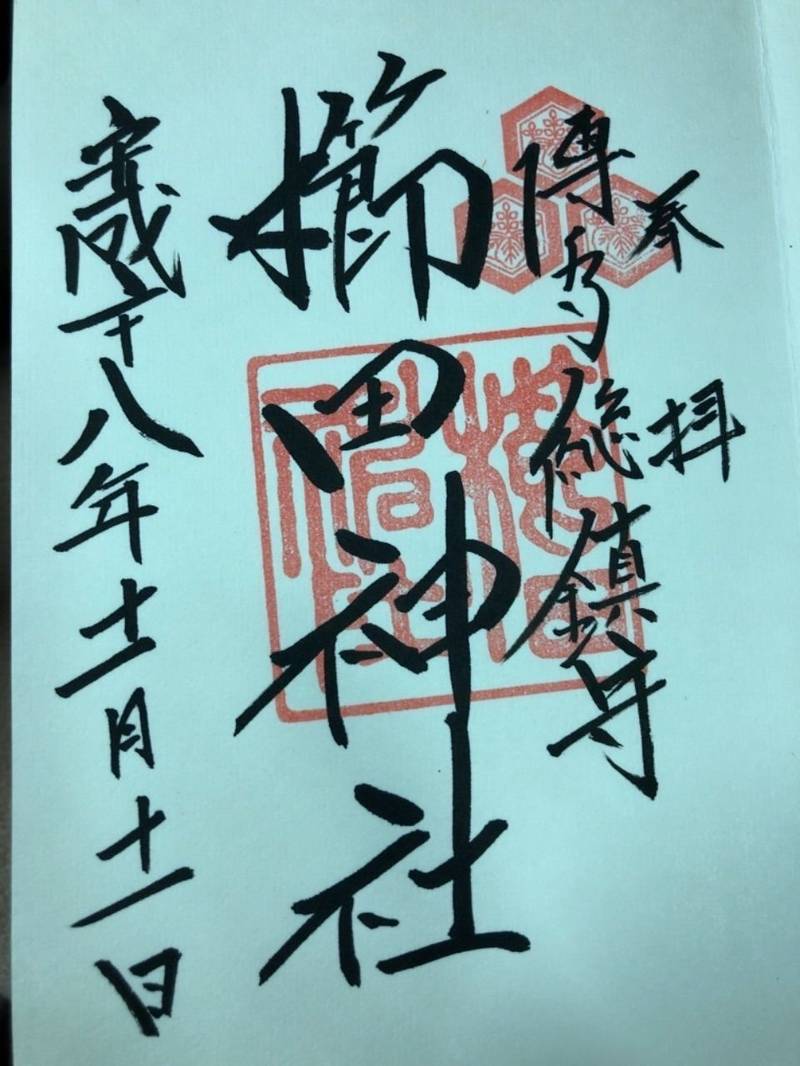 奉拝
博多総鎮守
櫛田神社
平成二十八年十一月十一日
櫛田
神社